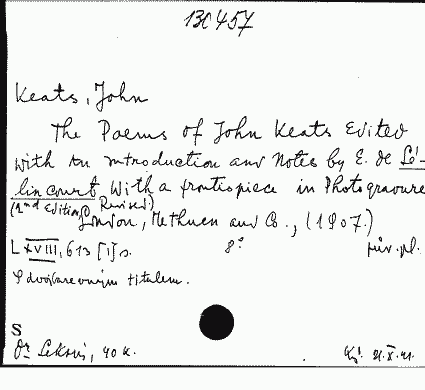 130457
Keats, John
The Poems of John Keats Edited
with an introduction and Notes by E. de Sé-
lincourt With a frontispiece in Photogravure
(2nd Edition Revised)
London, Methuen and Co., (1907.)
LXVIII, 613 [1] s. 8° pův. pl.
S dvojbarevným titulem.
S
Dr 40 K. 21.X.41.